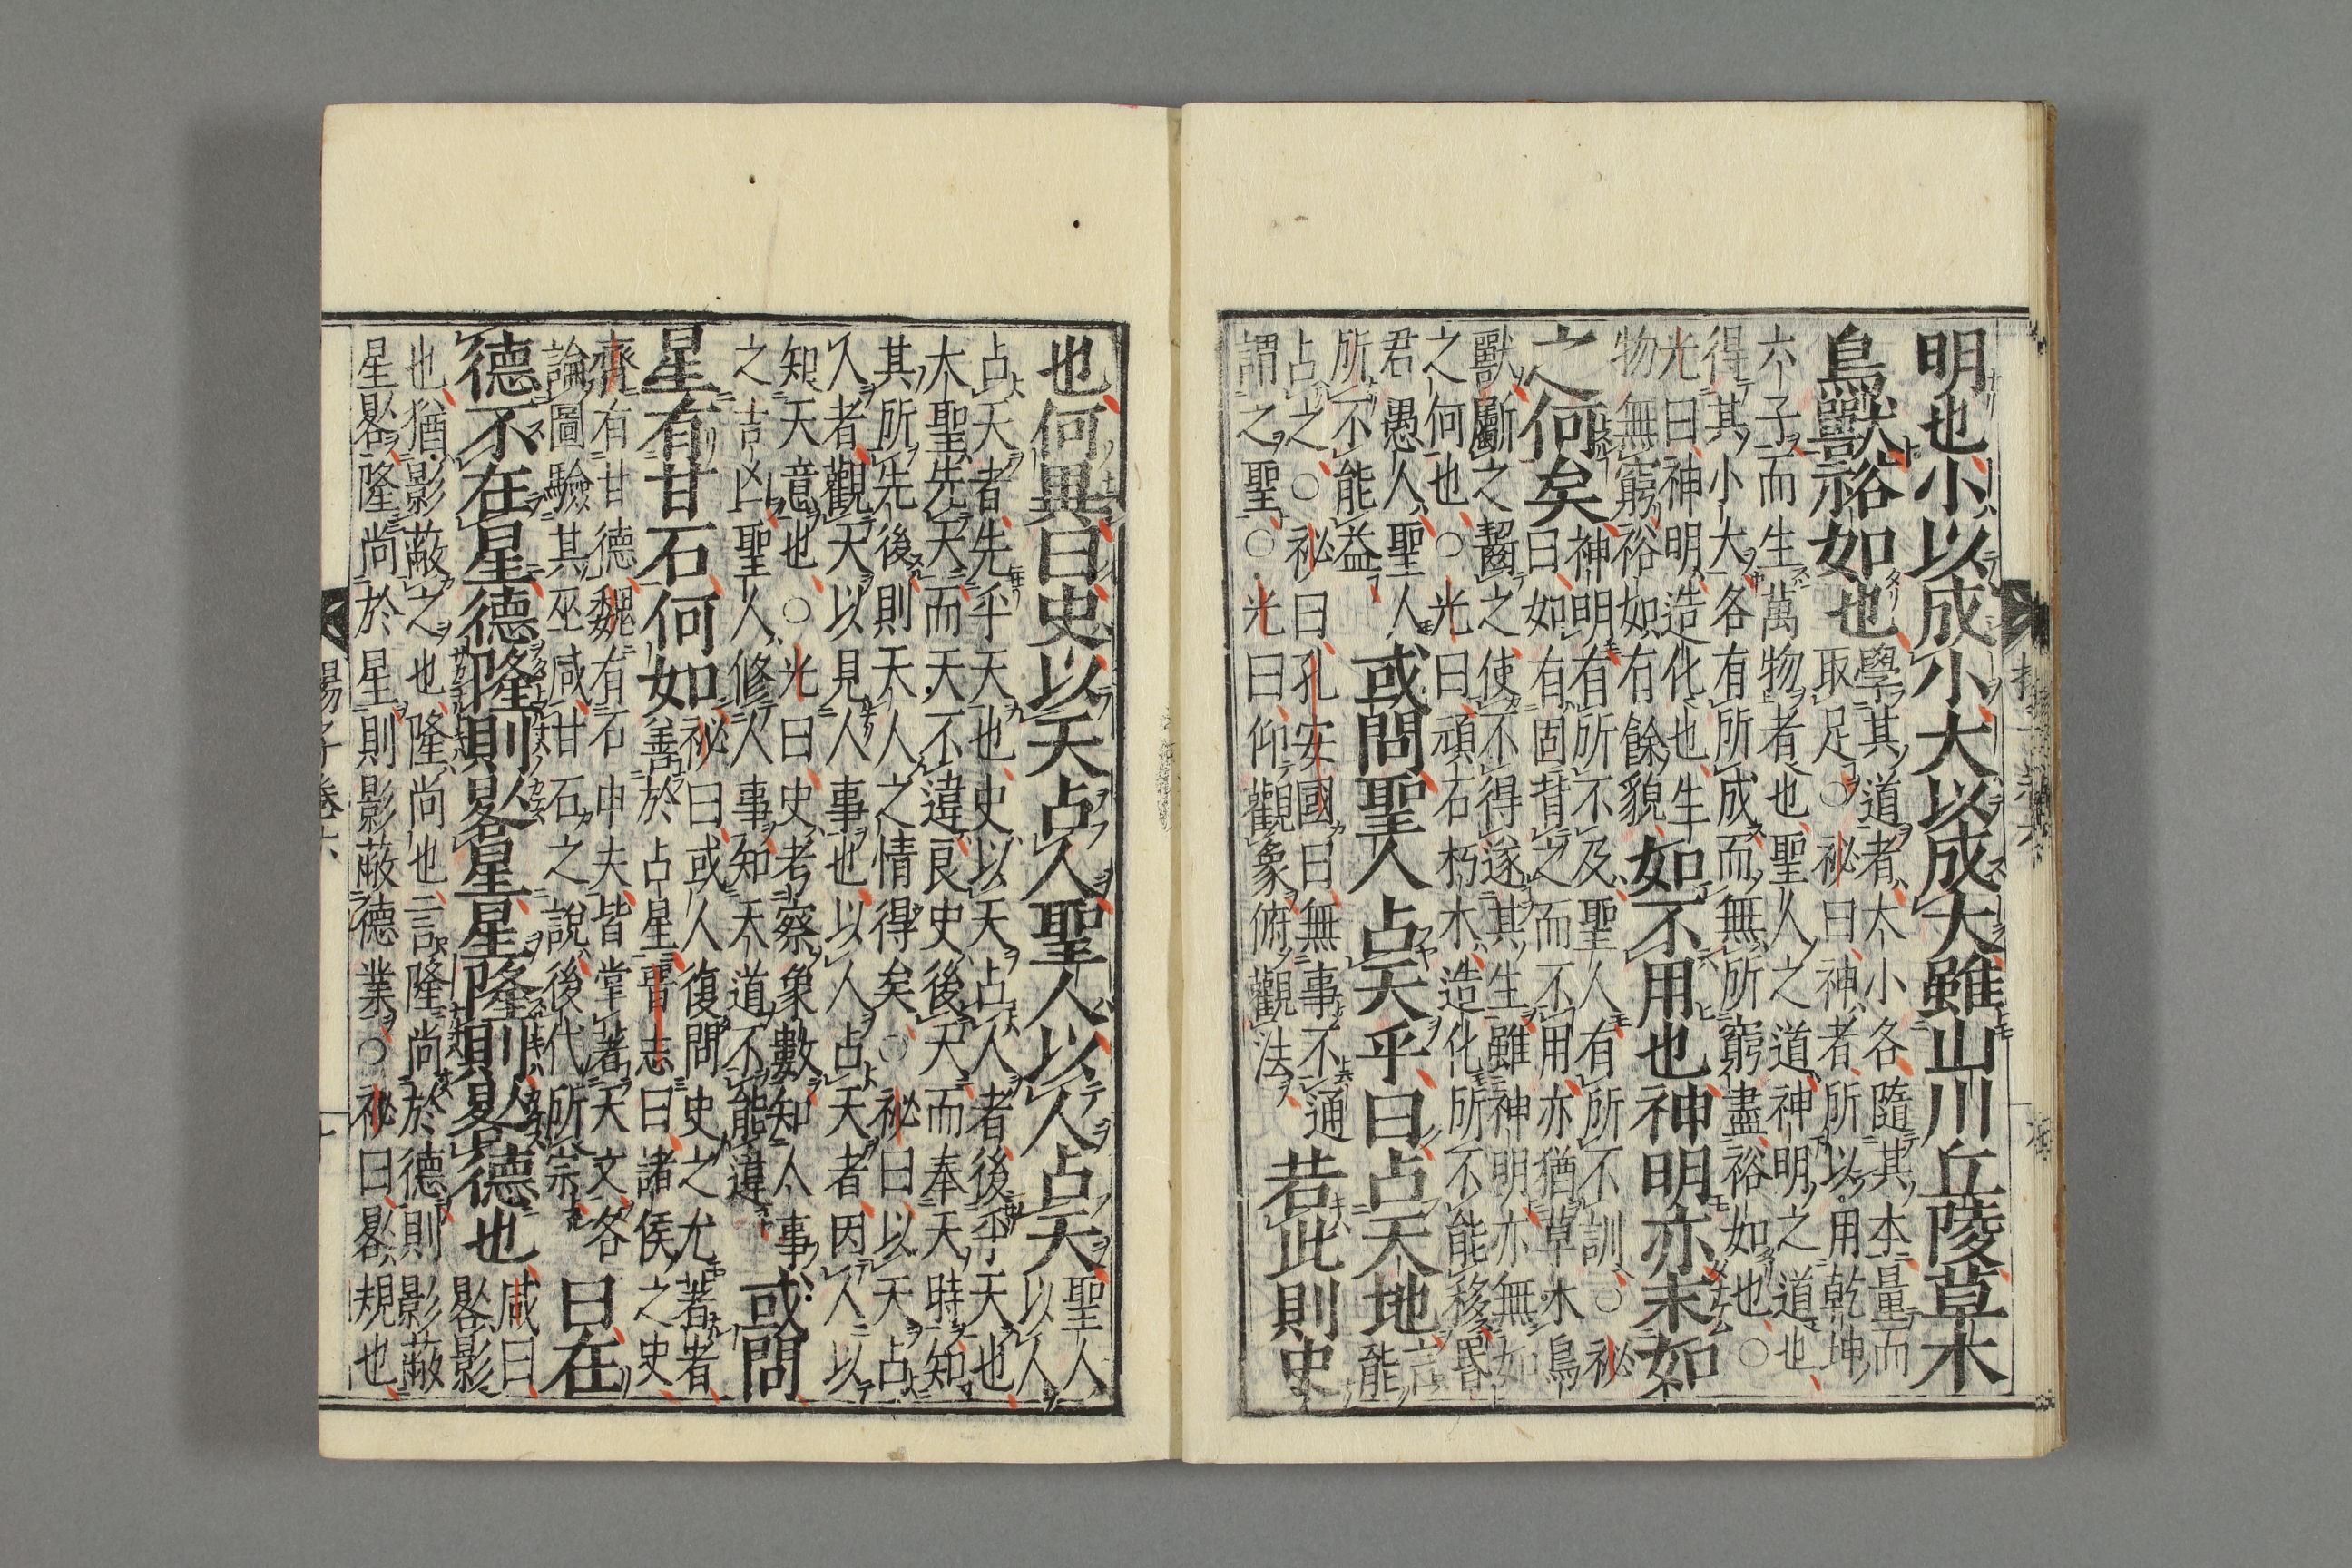 明也小以成小大以成大雖山川丘陵草木
鳥獸裕如也
學其道者大小各隨其本量而
取足○祕曰神者所以用乾坤
六子而生萬物者也聖人之道神明之道也
得其小大各有所成而無所窮盡裕如也○
光曰神明造化也生
物無窮裕如有餘貌
如不用也神明亦末如
之何矣
神明有所不及聖人有所不訓○祕
曰如有固背之而不用亦猶草木鳥
獸斸之齧之使不得遂其生雖神明亦無如
之何也○光曰頑石朽木造化所不能移昬
君愚人聖人
所不能益
或問聖人占天乎曰占天地
言
能
占之○祕曰孔安國曰無事不通
謂之聖○光曰仰觀象俯觀法
若此則史
也何異曰史以天占人聖人以人占天
聖人
以人
占天者先乎天也史以天占人者後乎天也
大聖先天而天不違良史後天而奉天時知
其所先後則天人之情得矣○祕曰以天占
人者觀天以見人事也以人占天者因人以
知天意也○光曰史考察象數知人事
之吉凶聖人修人事知天道不能違
或問
星有甘石何如
祕曰或人復問史之尤著者
善於占星晉志曰諸侯之史
齊有甘德魏有石申夫皆掌著天文各
論圖驗其巫咸甘石之說後代所宗
曰在
德不在星德隆則晷星星隆則晷德也
咸曰
晷影
也猶影蔽之也隆尚也言隆尚於德則影蔽
星晷隆尚於星則影蔽德業○祕曰晷規也